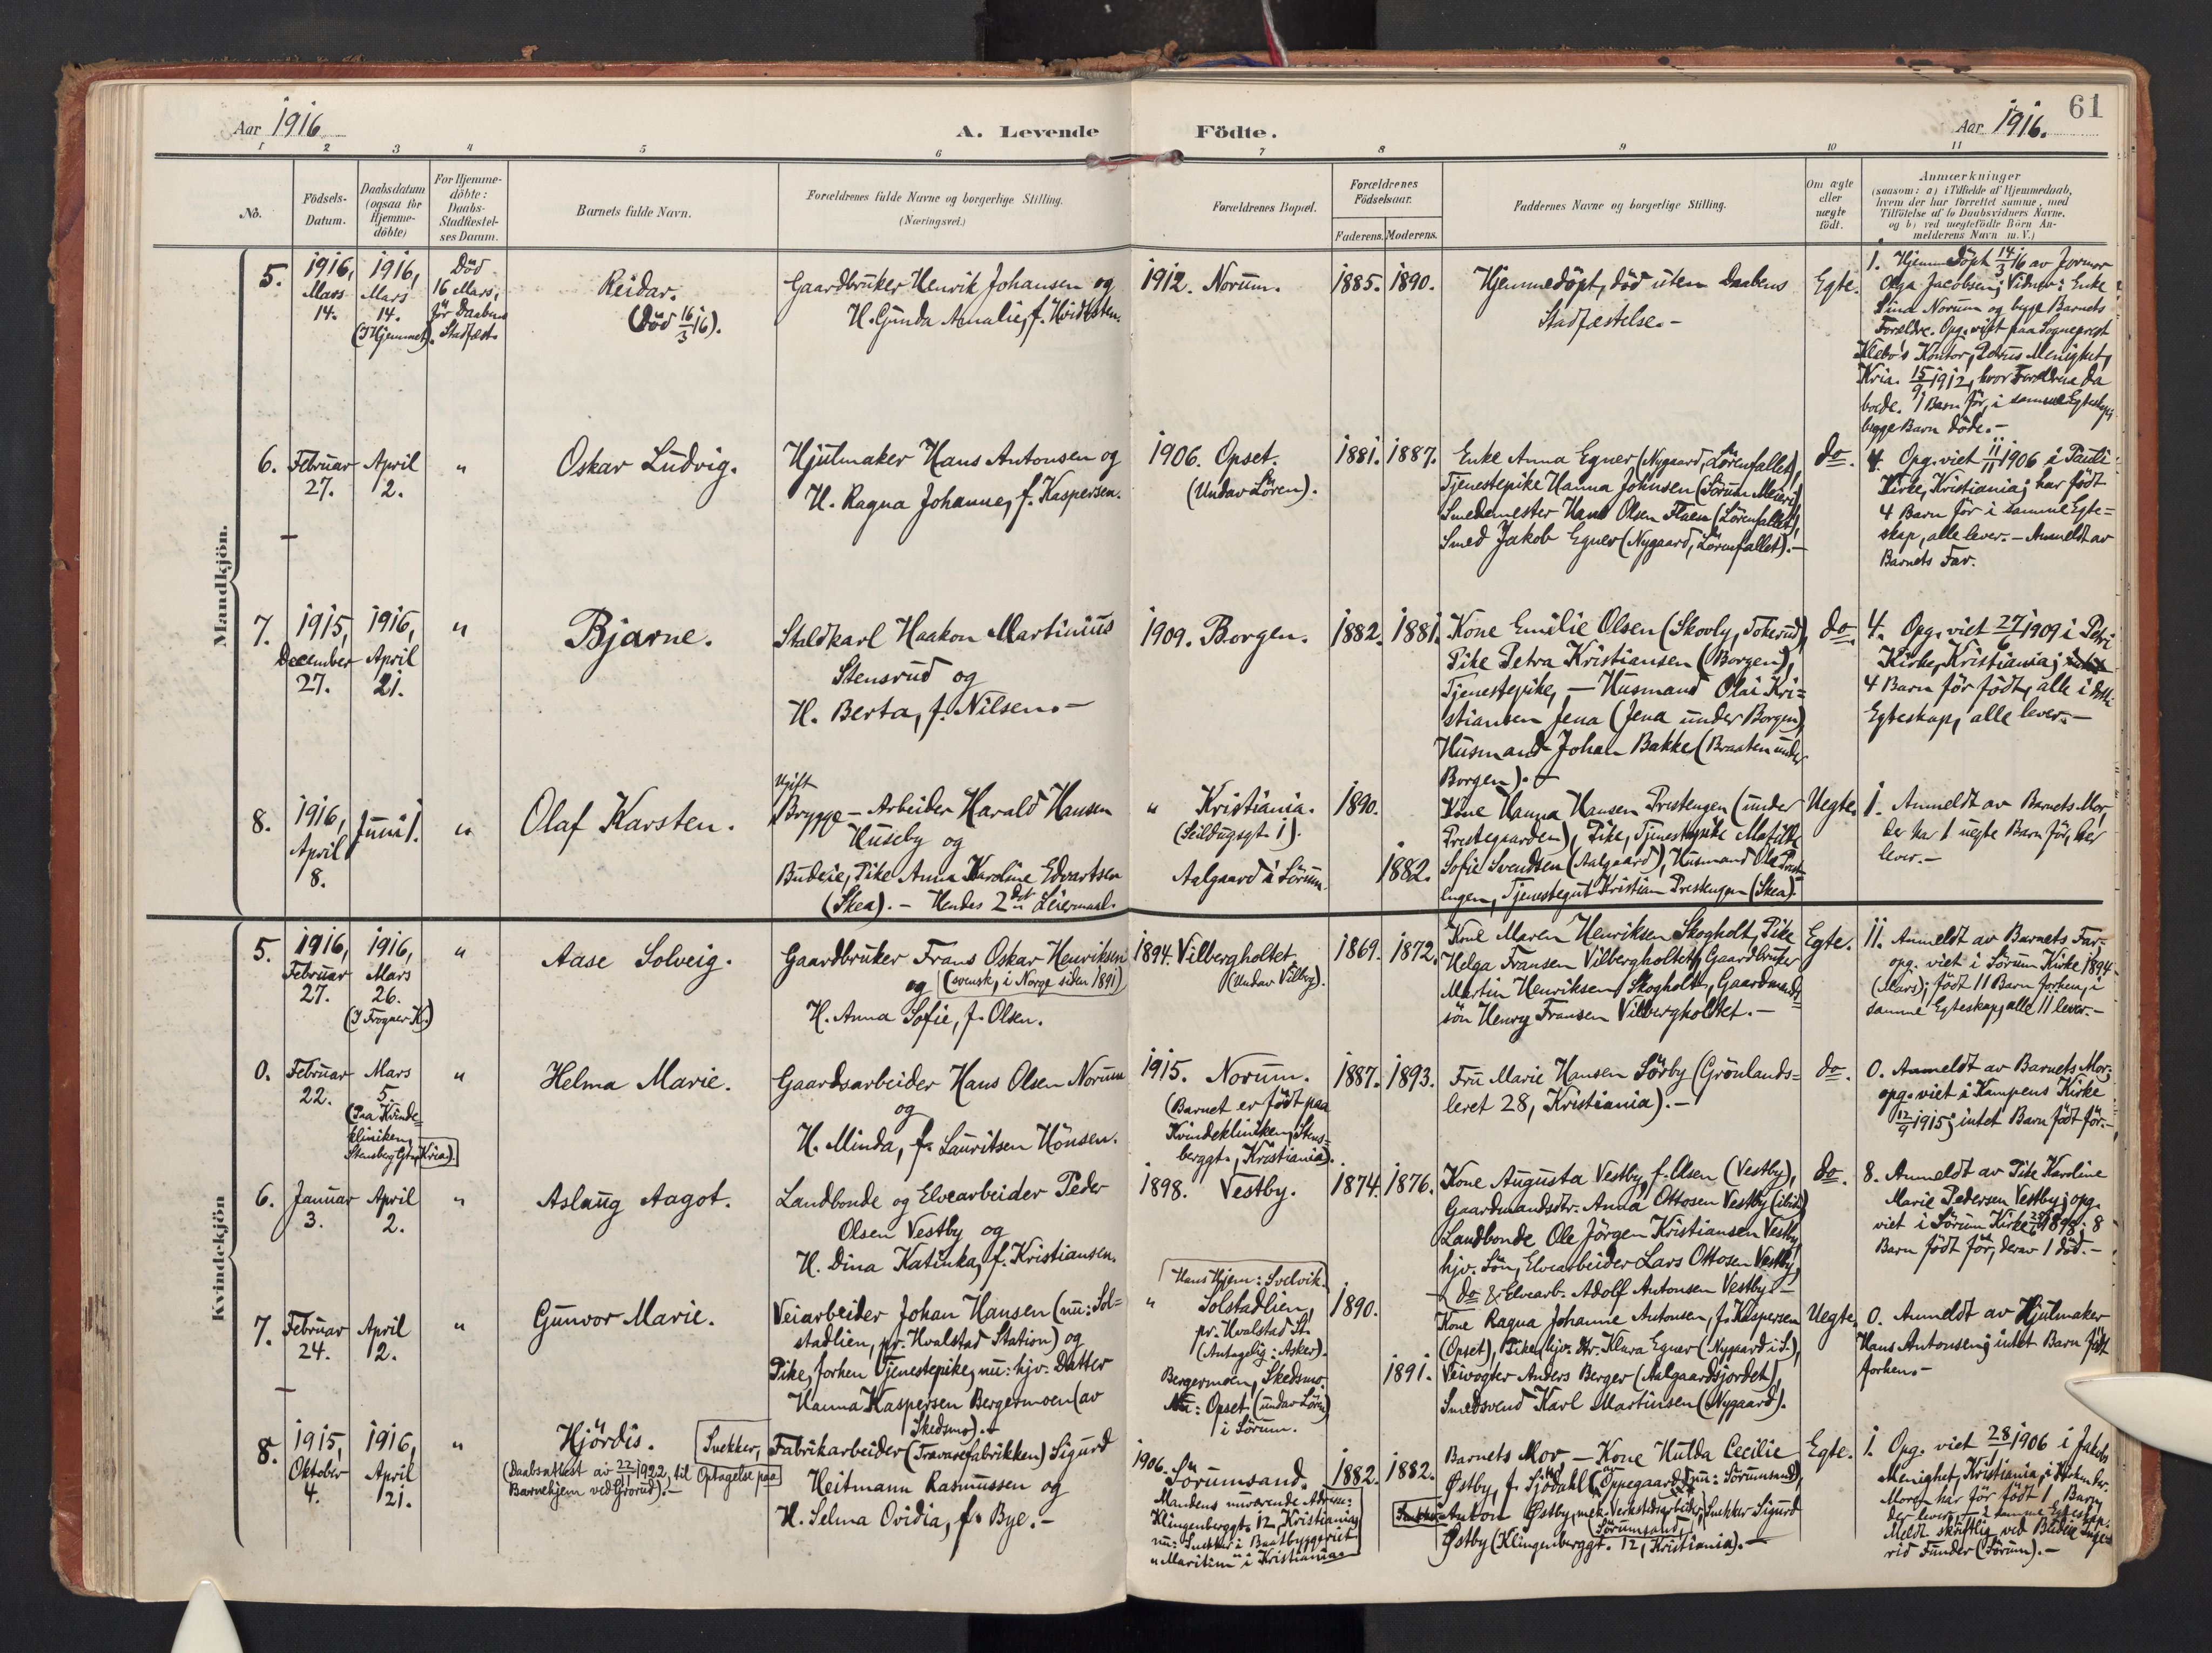 61
Aar 1916
A. Levende Födte.
Aar 1916.
1 2 3 4 5 6 7 8 9 10 11
No.
Födsels-
Datum.
Daabsdatum
(ogsaa for
Hjemme-
döbte)
For Hjemme-
döbte:
Daabs-
Stadfæstel-
ses Datum.
Barnets fulde Navn.
Forældrenes fulde Navne og borgerlige Stilling.
(Næringsvei.)
Forældrenes Bopæl.
Forældrenes
Födselsaar.
Faderens. Moderens.
Faddernes Navne og borgerlige Stilling.
Om ægte
eller
uægte
födt.
Anmærkninger
(saasom: a) i Tilfælde af Hjemmedaab,
hvem der har forrettet samme, med
Tilföielse af to Daabsvidners Navne,
og b) ved uægtefödte Börn An-
melderens Navn m. V.)
Mandkjön.
5.
1916,
Mars
14.
1916,
Mars
14.
(I Hjemmet).
Död
16 Mars,
för Daabens
Stadfæst.
Reidar.
(Död 16/3 16).
Gaardbruker Henrik Johansen og
H. Gunda Amalie, f. Hvidtsten.
1912. Norum.
1885. 1890.
Hjemmedöpt, död uten Daabens
Stadfæstelse.-
Egte.
1. Hjemmedöpt 14/3 16 av Jormor
Olga Jacobsen; Vidner: Enke
Lina Norum og begge Barnets
Forældre. Opg. viet paa Sogneprest
Klebo's Kontor, Petrus Menighet,
Kria. 15/9 1912, hvor Forældrene da
boede. 1 Barn för, i samme Egteskap,
begge Barn döde.-
6. Februar
27.
April
2.
"
Oskar Ludvig.
Hjulmaker Hans Antonsen og
H. Ragna Johanne, f. Kaspersen.
1906. Opset.
(Undav Lören).
1881. 1887.
Enke Anna Egner (Nygaard, Lörenfallet),
Tjenestepike Hanna Johnsen (Sörum Meieri),
Smedemester Hans Olsen Flaen (Lörenfallet),
Smed Jakob Egner (Nygaard, Lörenfallet).-
do.
4. Opg. viet 11/11 1906 i Pauli
Kirke, Kristiania; har födt
4 Barn för i samme Egte=
skap, alle lever.- Anmeldt av
Barnets Far.
7. 1915,
December
27.
1916,
April
21.
"
Bjarne.
Staldkarl Haakon Martinius
Stensrud og
H. Berta, f. Nilsen.-
1909. Borgen.
1882. 1881.
Kone Emilie Olsen (Skovly, Tokerud),
Pike Petra Kristiansen (Borgen),
Tjenestepike, - Husmand Olai Kri=
stiansen Jena (Jena under Borgen),
Husmand Johan Bakke (Braaten under
Borgen).-
do.
4. Opg. viet 27/6 1909 i Petri
Kirke, Kristiania;
4 Barn för födt, alle i dette
Egteskap, alle lever.-
8.
1916,
April
8.
Juni 1.
"
Olaf Karsten.
Ugift
Brygge-Arbeider Harald Hansen
Huseby og
Budeie, Pike Anna Karoline Edvartsen
(Skea).- Hendes 2det Leiermaal.
" Kristiania.
(Seildugsgt. 1).
Aalgaard i Sörum.
1890.
1882.
Kone Hanna Hansen Prestengen (under
Prestegaarden), Pike, Tjenestepike Matilde
Sofie Svendsen (Aalgaard), Husmand Ole Prest-
engen, Tjenestegut Kristian Prestengen (Skea).
Uegte.
1. Anmeldt av Barnets Mor,
der har 1 uegte Barn för, der
lever.-
Kvindekjön
5. 1916,
Februar
27.
1916,
Mars
26.
(I Frogner K.)
"
Aase Solveig.
Gaardbruker Frans Oskar Henriksen
og (svensk, i Norge siden 1891)
H. Anna Sofie, f. Olsen.
1894. Vilbergholtet.
(Undav Vilberg).
1869. 1872.
Kone Maren Henriksen Skogholt, Pike
Helga Fransen Vilbergholtet, Gaardbruker
Martin Henriksen Skogholt, Gaardmands=
sön Henry Fransen Vilbergholtet.-
Egte.
11. Anmeldt av Barnets Far.
opg. viet i Sörum Kirke 1894
(Mars); födt 11 Barn forhen, i
samme Egteskap, alle 11 lever.-
0. Februar
22.
Mars
5.
(Paa Kvinde=
kliniken,
Stensberg Gt., Kria).
"
Helma Marie.
Gaardsarbeider Hans Olsen Norum
og
H. Minda, f. Lauritsen Hönsen.
1915. Norum.
(Barnet er födt paa
Kvindekliniken, Stens=
berggt., Kristiania).
1887. 1893.
Fru Marie Hansen Sörby (Grönlands=
leret 28, Kristiania).-
do.
0. Anmeldt av Barnets Mor;
opg. viet i Kampens Kirke
12/9 1915; intet Barn födt för.-
6. Januar
3.
April
2.
"
Aslaug Aagot.
Landbonde og Elvearbeider Peder
Olsen Vestby og
H. Dina Katinka, f. Kristiansen.
1898. Vestby.
1874. 1876.
Kone Augusta Vestby, f. Olsen (Vestby),
Gaardmandsdtr. Anna Ottosen Vestby (ibid.),
Landbonde Ole Jörgen Kristiansen Vestby,
hjv. Sön, Elvearbeider Lars Ottosen Vestby,
- do & Elvearb. Adolf Antonsen Vestby.-
do.
8. Anmeldt av Pike Karoline
Marie Pedersen Vestby; opg.
viet i Sörum Kirke 1898; 8
Barn födt för, derav 1 död.-
7. Februar
24.
April
2.
"
Gunvor Marie.
Veiarbeider Johan Hansen (nu: Sol=
stadlien, pr. Hvalstad Station) og
Pike, forhen Tjenestepike, nu: hjv. Datter
Hanna Kaspersen Bergermoen (av
Skedsmo).-
Hans Hjem: Svelvik.
" Solstadlien,
pr. Hvalstad St.
(Antagelig: Asker).
Bergermoen, Skedsmo.
Nu: Opset (undav Lören)
i Sörum.
1890.
1891.
Kone Ragna Johanne Antonsen, f. Kaspersen
(Opset), Pike, hjv. dtr. Klara Egner (Nygaard i S.),
Veivogter Anders Berger (Aalgaardsjordet),
Smedsvend Karl Martinsen (Nygaard).
Uegte.
0. Anmeldt av Hjulmaker
Hans Antonsen; intet Barn födt
forhen.-
8. 1915,
Oktober
4.
1916,
April
21.
"
Hjördis.
(Daabsattest av 22/11 1922, til Optagelse paa
Barnehjem ved Grorud).-
Snekker,
Fabrikarbeider (Travarefabrikken) Sigurd
Heitmann Rasmussen og
H. Selma Ovidia, f. Bye.-
1906. Sörumsand.
Mandens nuværende Adresse:
Klingenberggt. 12, Kristiania,
nu: Snekker i Baatbyggeriet
"Maritim" i Kristiania.
1882. 1882.
Barnets Mor, - Kone Hulda Cecilie
Østby, f. Sjödahl (Oppegaard, nu: Sörumsand),
Anton Østby, mek. Verkstedarbeider, Snekker Sigurd
(Sörumsand)
Østby (Klingenberggt. 12, Kristiania).-
Egte.
1. Opg. viet 28/ 1906 i Jakobs
Menighet, Kristiania, i Kirken der.
Moren har för födt 1 Barn,
der lever, - i samme Egteskap.
Meldt skriftlig ved Budeie Inge=
rid Funder (Sörum).-